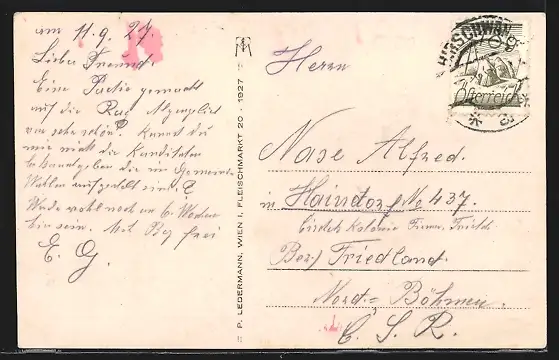 am 11.9.27.
Lieber Freund!
Eine Partie gemacht
auf die Rax Alpenflora
war sehr schön. Kannst du
mir nicht die Kandidaten
bekanntgeben die in Gemeinde
Wahlen aufgestellt sind. E
Werde wohl noch 6 Wochen
hier sein. Mit Berg frei
E. G.
P. LEDERMANN, WIEN I, FLEISCHMARKT 20 - 1927
HIRSCHWANG
Österreich
Herrn
Nase Alfred.
in Haindorf No 437.
Kolonie
Bez. Friedland.
Nord-Böhmen.
C. S. R.